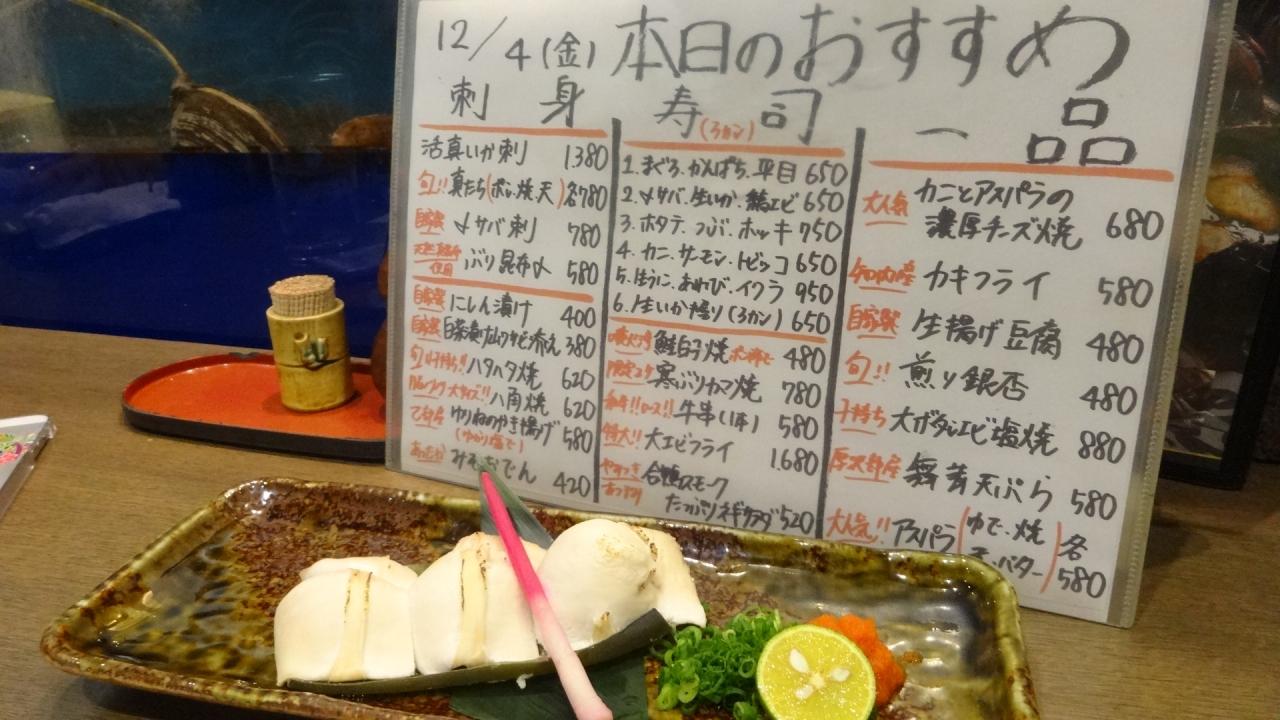 12/4(金) 本日のおすすめ
刺身
活真いか刺 1380
旬!! 真たち(ポン.焼.天)各780
自家製 〆サバ刺 780
ぶり昆布〆 580
自家製 にしん漬け 400
自家製 白菜漬け山ワサビ添え 380
旬!子持ち!! ハタハタ焼 620
大サイズ!! 八角焼 620
ゆりねのかき揚げ 580
(ゆかり塩で)
みそおでん 420
寿司
(3カン)
1. まぐろ.かんぱち.平目 650
2. 〆サバ.生いか.鯖エビ 650
3. ホタテ.つぶ.ホッキ 750
4. カニ.サーモン.トビッコ 650
5. 生うに.あわび.イクラ 950
6. 生いか握り(3カン) 650
鮭白子焼 ポン酢で 480
限定2ヶ 寒ぶりカマ焼 780
和牛!!ロース!! 牛串(1本) 580
特大!! 大エビフライ 1.680
合鴨スモーク
たっぷりネギサラダ 520
一品
大人気 カニとアスパラの
濃厚チーズ焼 680
知内産 カキフライ 580
自家製 生揚げ豆腐 480
旬!! 煎り銀杏 480
子持ち 大ガタエビ塩焼 880
厚沢部産 舞茸天ぷら 580
大人気!! アスパラ(ゆで.焼
天.バター)各580